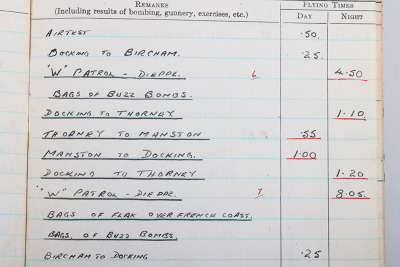 REMARKS FLYING TIMES
(Including results of bombing, gunnery, exercises, etc.) DAY NIGHT
AIRTEST .50.
DOCKING TO BIRCHAM. .25.
"W" PATROL - DIEPPE. 6. 4.50
BAGS OF BUZZ BOMBS.
DOCKING TO THORNEY 1.10
THORNEY TO MANSTON .55
MANSTON TO DOCKING. 1.00
DOCKING TO THORNEY 1.20
"W" PATROL - DIEPPE. 7. 8.05.
BAGS OF FLAK OVER FRENCH COAST.
BAGS OF BUZZ BOMBS.
BIRCHAM TO DOCKING .25